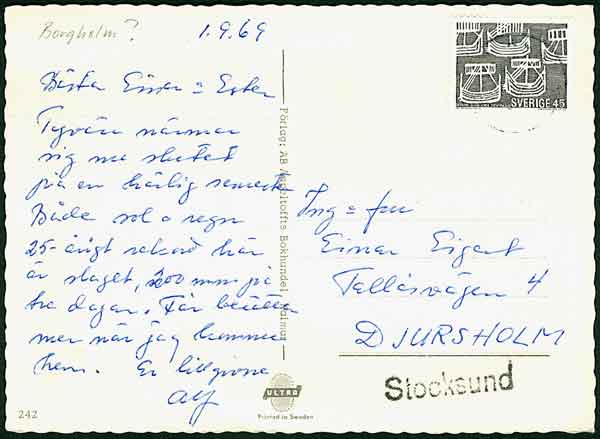 Borgholm?
1.9.69
SVERIGE 45
Bästa Einar o Ester
Tyvärr närmar
sig nu slutet
på en härlig semester
Både sol o regn
25-årigt rekord här
är slaget, 200 mm på
tre dagar. Får berätta
mer när jag kommer
hem. Er tillgivne
Alf
Förlag: AB Bokhandel Kalmar
Ing o fru
Einar Eigert
Tallåsvägen 4
DJURSHOLM
Stocksund
ULTRA
Printed in Sweden
242